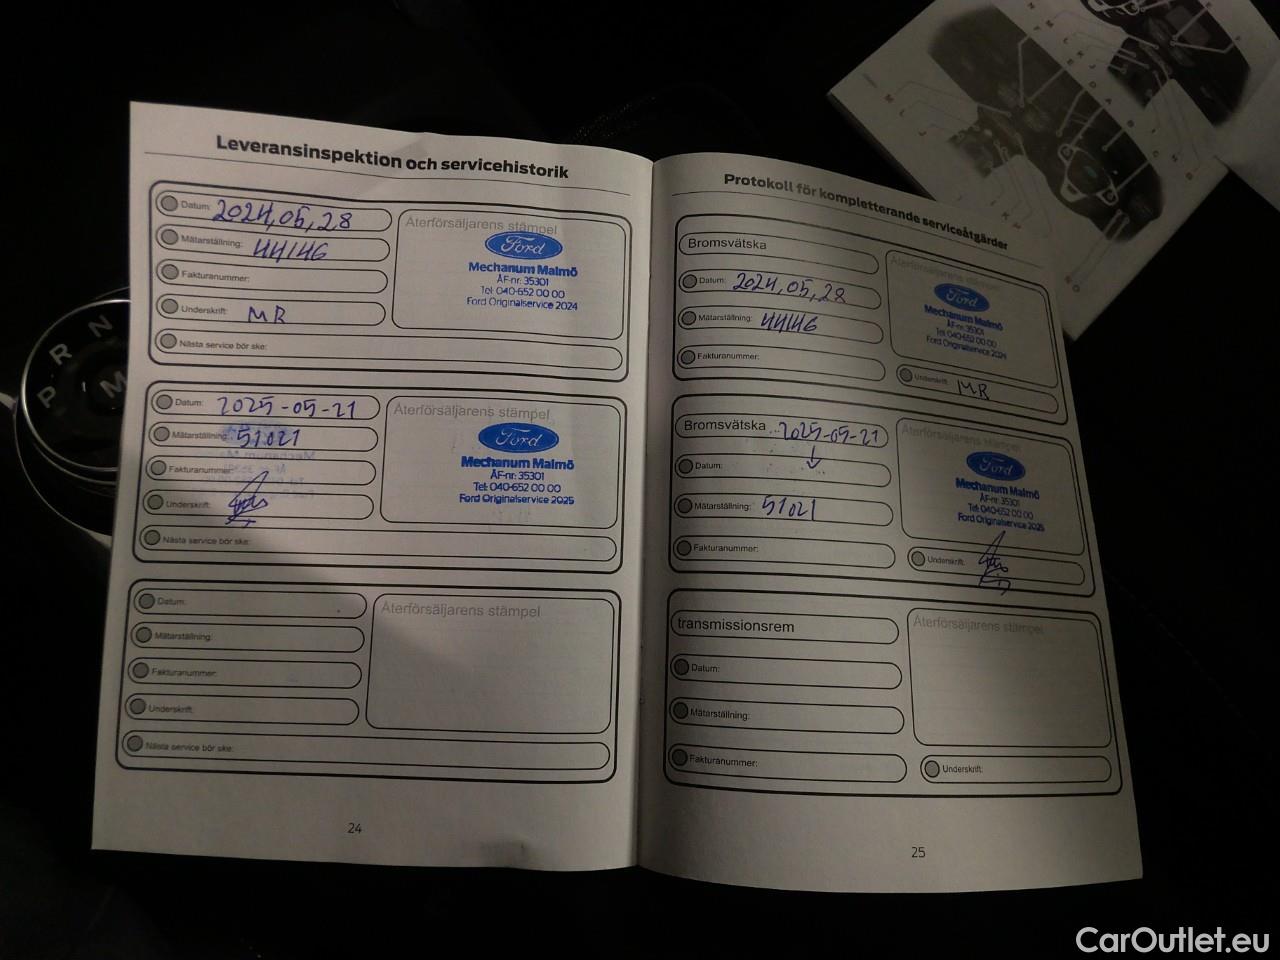 Leveransinspektion och servicehistorik
Datum: 2024,05,28
Mätarställning: 44146
Fakturanummer:
Underskrift: MR
Nästa service bör ske:
Återförsäljarens stämpel
Ford
Mechanum Malmö
ÅF-nr: 35301
Tel: 040-652 00 00
Ford Originalservice 2024
Datum: 2025-05-21
Mätarställning: 51021
Fakturanummer:
Underskrift:
Nästa service bör ske:
Återförsäljarens stämpel
Ford
Mechanum Malmö
ÅF-nr: 35301
Tel: 040-652 00 00
Ford Originalservice 2025
Datum:
Mätarställning:
Fakturanummer:
Underskrift:
Nästa service bör ske:
Återförsäljarens stämpel
24
Protokoll för kompletterande serviceåtgärder
Bromsvätska
Datum: 2024,05,28
Mätarställning: 44146
Fakturanummer:
Återförsäljarens stämpel
Ford
Mechanum Malmö
ÅF-nr: 35301
Tel: 040-652 00 00
Ford Originalservice 2024
Underskrift: MR
Bromsvätska 2025-05-21
Datum:
Mätarställning: 51021
Fakturanummer:
Återförsäljarens stämpel
Ford
Mechanum Malmö
ÅF-nr: 35301
Tel: 040-652 00 00
Ford Originalservice 2025
Underskrift:
transmissionsrem
Datum:
Mätarställning:
Fakturanummer:
Återförsäljarens stämpel
Underskrift:
25
P R N
M
CarOutlet.eu